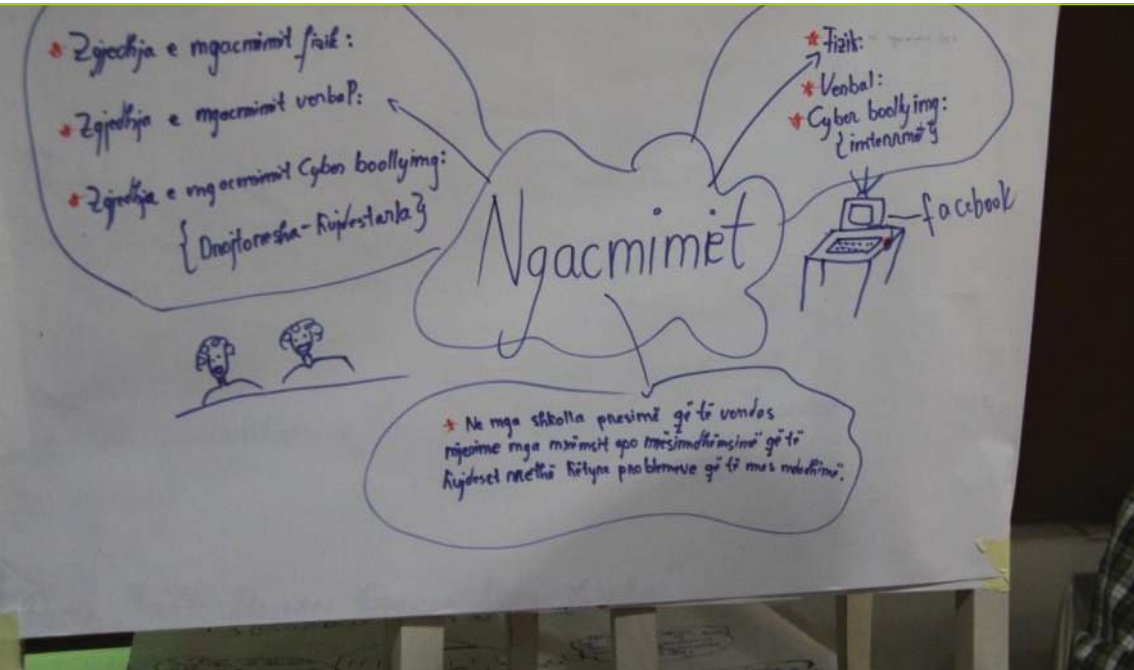 * Zgjedhja e ngacmimit fizik:
* Zgjedhja e ngacmimit verbal:
* Zgjedhja e ngacmimit Cyber boollying:
{Drejtoresha-Kujdestarja}
* Fizik:
* Verbal:
* Cyber boollying:
{internimë}
facebook
Ngacmimet
* Ne nga shkolla presimë që të vendos
njerime nga mësimdhënsimë që të
Kujdeset rrethë këtyne problemeve që të mos ndodhimë.